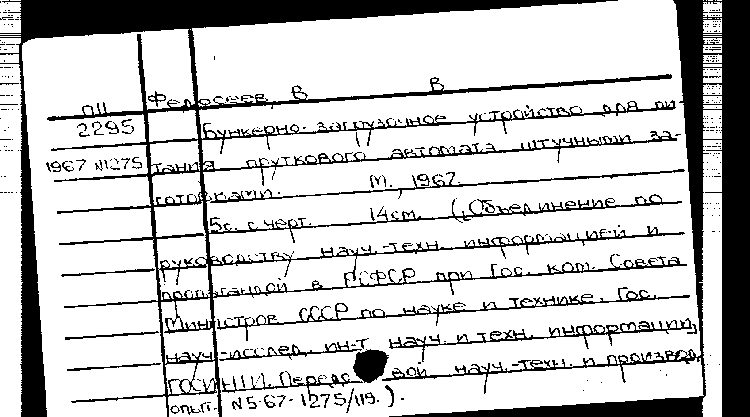 П11 Федосеев, В В
2295 Бункерно-загрузочное устройство для пи-
1967 №1275 тания пруткового автомата штучными за-
готовками. М., 1967.
5с. с черт. 14см. (Объединение по
руководству науч.-техн. информацией и
пропагандой в РСФСР при Гос. ком. Совета
Министров СССР по науке и технике. Гос.
науч.-исслед. ин-т науч. и техн. информации,
ГОСИНТИ. Передовой науч.-техн. и произвед.
опыт. №5-67-1275/119.).